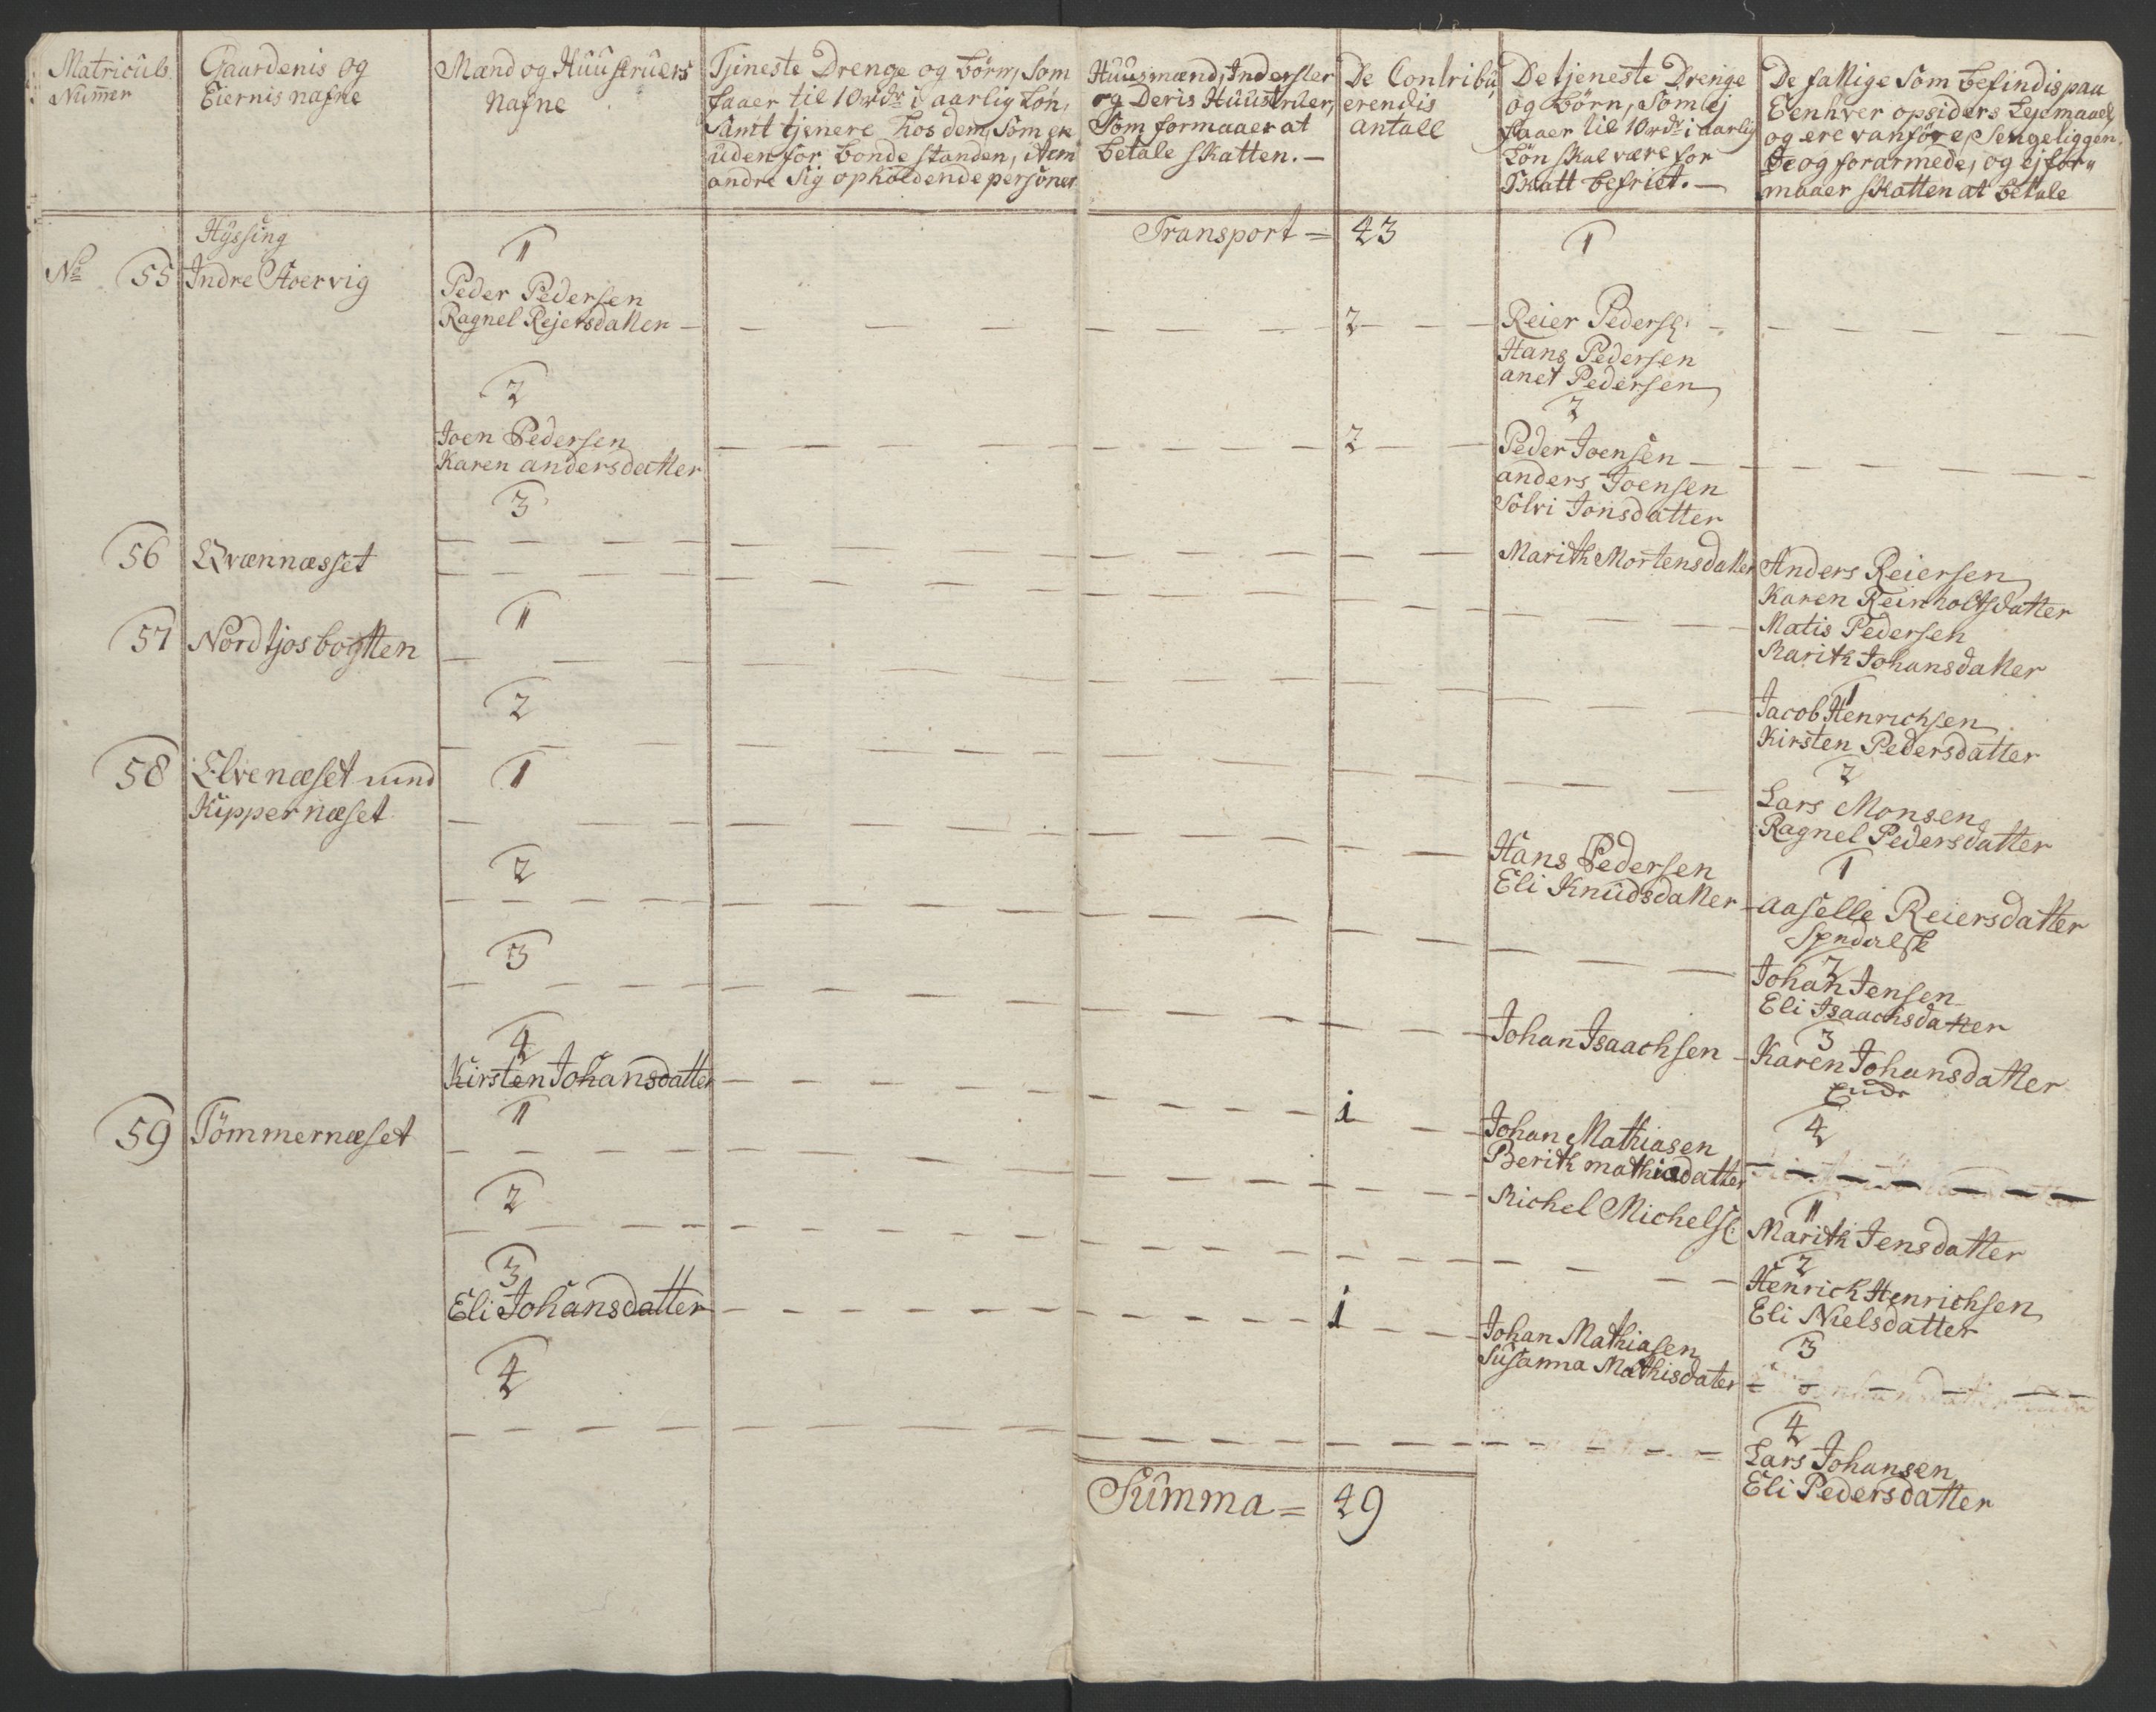 Matriculs
Nummer
Gaardenis og
Eiernis nafne
Mænd og Huustruers
Nafne
Tjeneste Drenge og börn, som
faaer til 10 rdr i aarlig Lön,
samt tjenere hos dem, som ere
uden for bonde standen, item
andre sig opholdende personer
Huusmænd, Inderster
og Deris Huustruer,
Som formaaer at
betale skatten. —
De Contribu
erendis
antall
De tjeneste Drenge
og börn, som ej
faaer til 10 rdr i aarlig
Lön skal være for
Skatt befriet. —
De fattige som befindis paa
Eenhver opsiders Lejemaael,
og ere vanföre, Sengeliggen,
de og forarmede, og ej for„
maaer skatten at betale
Transport = 43
Hyssing
No 55 Indre Stoervig
1
Peder Pedersen
Ragnel Rejersdatter — 2
1
Reier Peders:
Hans Pedersen
anet Pedersen
2
Joen Pedersen
Karen andersdatter — 2
2
Peder Joensen —
anders Joensen
Sölvi Jonsdatter
3
Marith Mortensdatter
56 Qvænnæsset
Anders Reiersen
Karen Reinholtsdatter
Matis Pedersen
Marith Johansdatter
57 Nordtjosbogtten
1
2
1
Jacob Henrichsen
Kirsten Pedersdatter
2
Lars Monsen
Ragnel Pedersdatter
58 Elvenæset und
Kippernæset
1
Hans Pedersen
Eli Knudsdatter —
1
aaselle Reiersdatter
Spndalsk
2
2
Johan Jensen
Eli Isaachsdatter
3
Johan Isaachsen —
3
Karen Johansdatter
Enke
4
Kirsten Johansdatter — 1
Johan Mathiasen
Berith mathiadatter
4
59 Tömmernæset
1
Michel Michels:
1
Marith Jensdatter
2
2
Henrich Henrichsen
Eli Nielsdatter
3
Eli Johansdatter — 1
Johan Mathiasen
Susanna Mathisdater
3
4
4
Lars Johansen
Eli Pedersdatter
Summa = 49